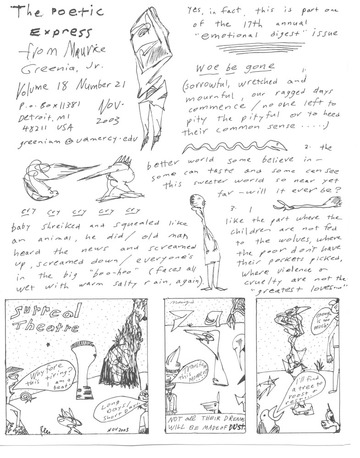 The Poetic
Express
from Maurice
Greenia, Jr.
Volume 18 Number 21
P.O. Box 11381
Detroit, MI
48211 USA
Nov.
2003
greenim@udmercy.edu
Yes, in fact, this is part one
of the 17th annual
"emotional digest" issue
woe be gone
(sorrowful, wretched and
mournful, our ragged days
commence / no one left to
pity the pityful or to heed
their common sense.....)
2. the
better world some believe in—
some can taste and some can see
this sweeter world so near yet
far—will it ever be?
cry cry cry cry
baby shreiked and squealed like
an animal, he did / old man
heard the news and screamed
up, screamed down / everyone's
in the big "boo-hoo" (faces all
wet with warm salty rain, again)
3. I
like the part where the
children are not fed
to the wolves, where
the poor don't have
their pockets picked,
where violence or
cruelty are not the
"greatest loves"
Surreal
Theatre
Long
Days
Short
Nov 2003
NOT ALL THEIR DREAMS
WILL BE MADE OF DUST
I'll find
a tree to
roost